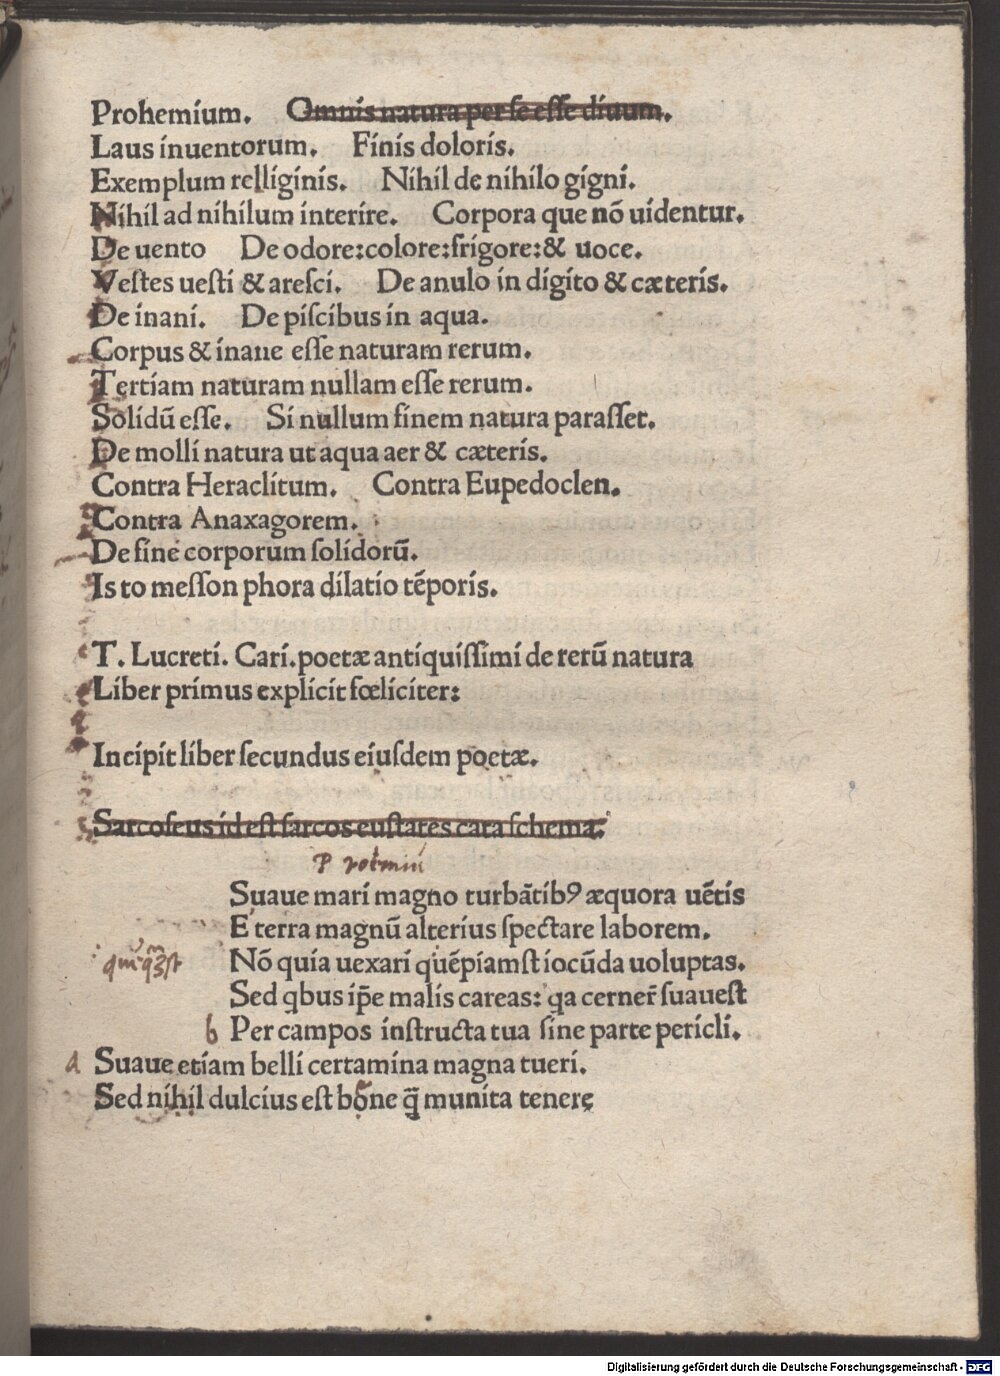 Prohemium. Omnis natura per se esse diuum.
Laus inuentorum. Finis doloris.
Exemplum relliginis. Nihil de nihilo gigni.
Nihil ad nihilum interire. Corpora que nō uidentur.
De uento De odore:colore:frigore:& uoce.
Vestes uesti & aresci. De anulo in digito & cæteris.
De inani. De piscibus in aqua.
Corpus & inane esse naturam rerum.
Tertiam naturam nullam esse rerum.
Solidū esse. Si nullum finem natura parasset.
De molli natura ut aqua aer & cæteris.
Contra Heraclitum. Contra Eupedoclen.
Contra Anaxagorem.
De fine corporum solidorū.
Is to messon phora dilatio tēporis.
T. Lucreti. Cari.poetæ antiquissimi de rerū natura
Liber primus explicit fœliciter:
Incipit liber secundus eiusdem poetæ.
Sarcoseus id est sarcos eustates cata schema:
Suaue mari magno turbātibꝰ æquora uētis
E terra magnū alterius spectare laborem.
Nō quia uexari quēpiamst iocūda uoluptas.
Sed qbus ip̄e malis careas: qa cerner̄ suauest
b Per campos instructa tua sine parte pericli.
a Suaue etiam belli certamina magna tueri.
Sed nihil dulcius est bone q̄ munita tenere
Digitalisierung gefördert durch die Deutsche Forschungsgemeinschaft - DFG